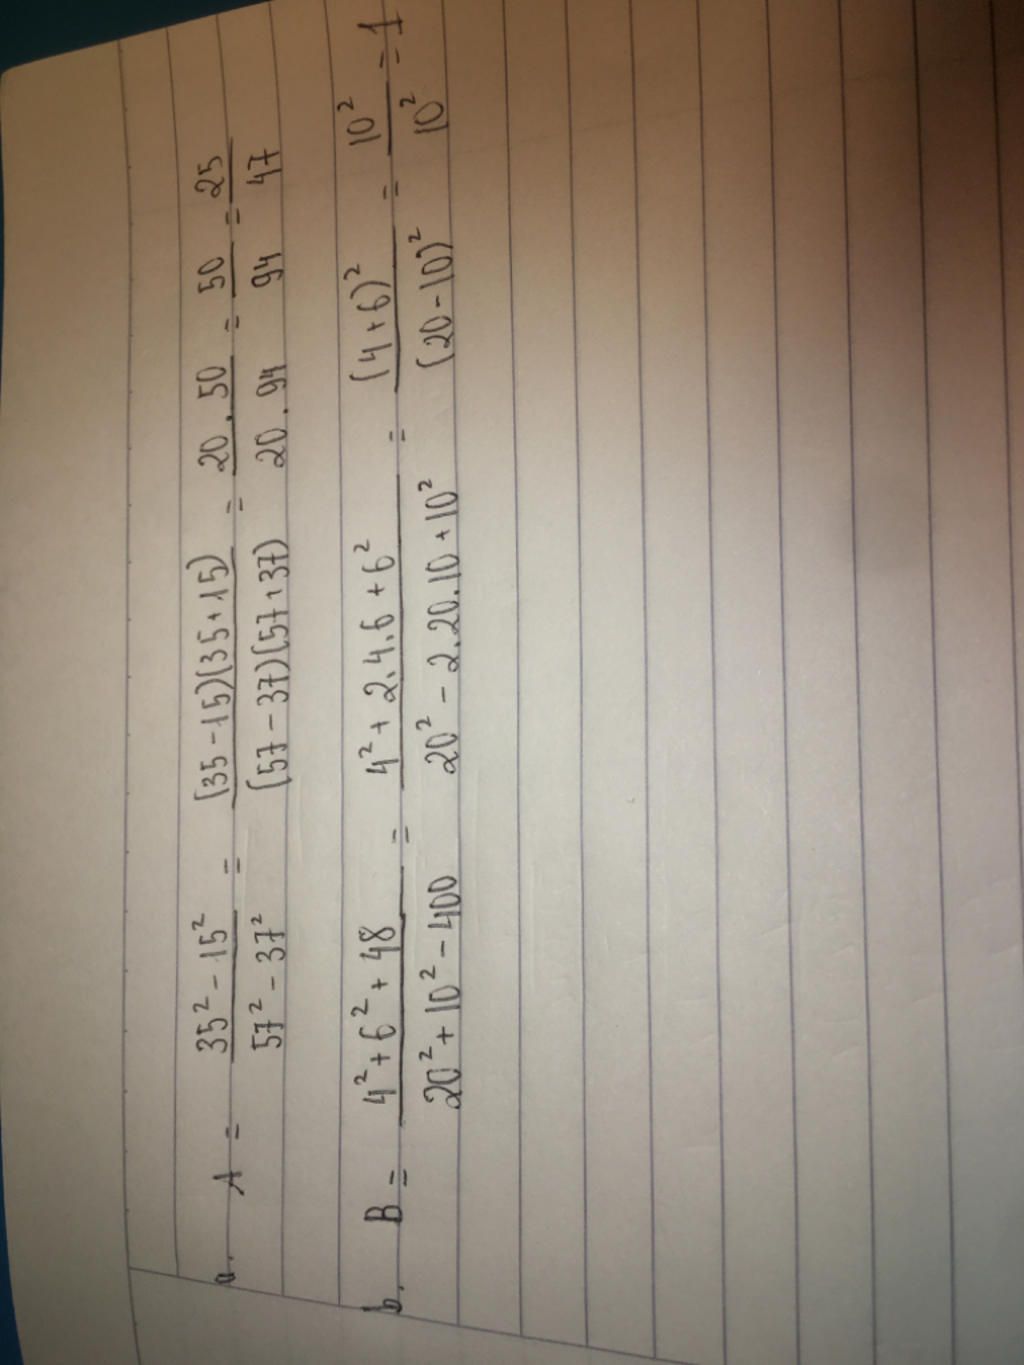 a. A = \frac{35² - 15²}{57² - 37²} = \frac{(35 - 15)(35 + 15)}{(57 - 37)(57 + 37)} = \frac{20 . 50}{20 . 94} = \frac{50}{94} = \frac{25}{47}
b. B = \frac{4² + 6² + 48}{20² + 10² - 400} = \frac{4² + 2.4.6 + 6²}{20² - 2.20.10 + 10²} = \frac{(4 + 6)²}{(20 - 10)²} = \frac{10²}{10²} = 1